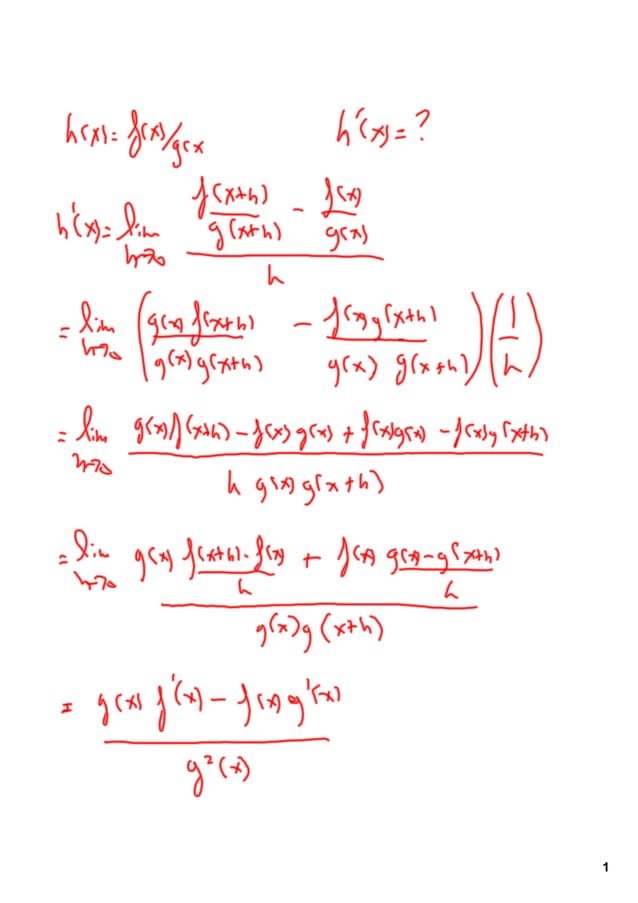 h(x) = f(x)/g(x h'(x) = ?
h'(x) = lim h→0 (f(x+h)/g(x+h) - f(x)/g(x))/h
= lim h→0 (g(x) f(x+h)/g(x) g(x+h) - f(x) g(x+h)/g(x) g(x+h)) (1/h)
= lim h→0 (g(x) f(x+h) - f(x) g(x) + f(x) g(x) - f(x) g(x+h))/(h g(x) g(x+h))
= lim h→0 (g(x) (f(x+h) - f(x))/h + f(x) (g(x) - g(x+h))/h)/(g(x) g(x+h))
= (g(x) f'(x) - f(x) g'(x))/g²(x)
1